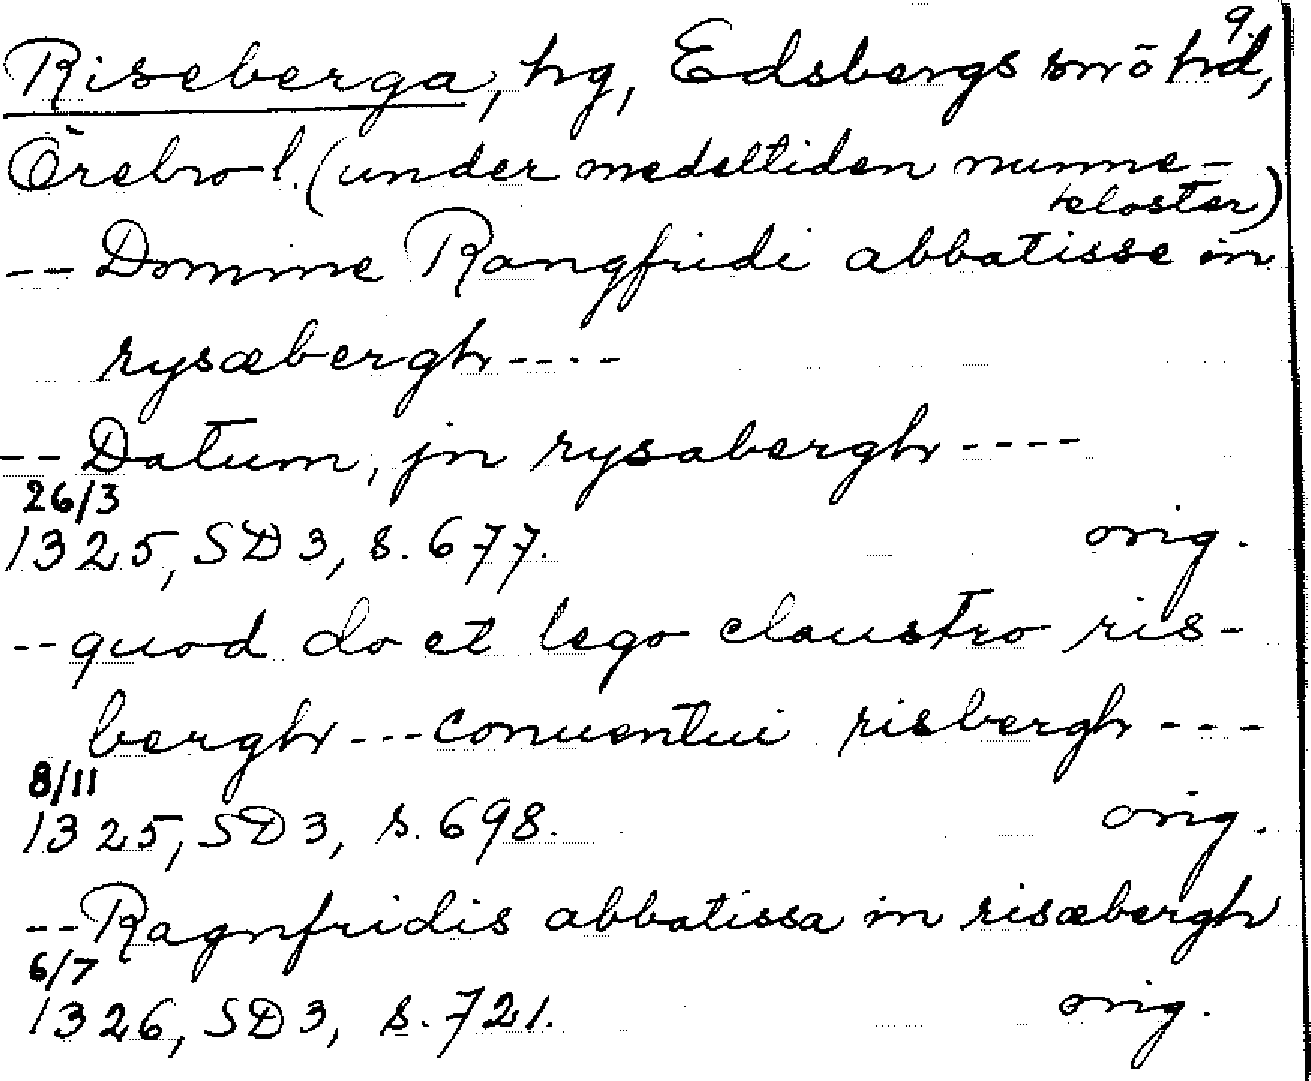 9.
Riseberga, hg, Edsbergs sn o hd,
Örebro l. (under medeltiden nunne-
kloster)
-- Domine Rangfridi abbatisse in
rysæbergh ----
-- Datum, jn rysabergh ----
26/3
1325, SD 3, s. 677. orig.
-- quod do et lego claustro ris-
bergh --- conuentui risbergh ---
8/11
1325, SD 3, s. 698. orig.
-- Ragnfridis abbatissa in risæbergh
6/7
1326, SD 3, s. 721. orig.